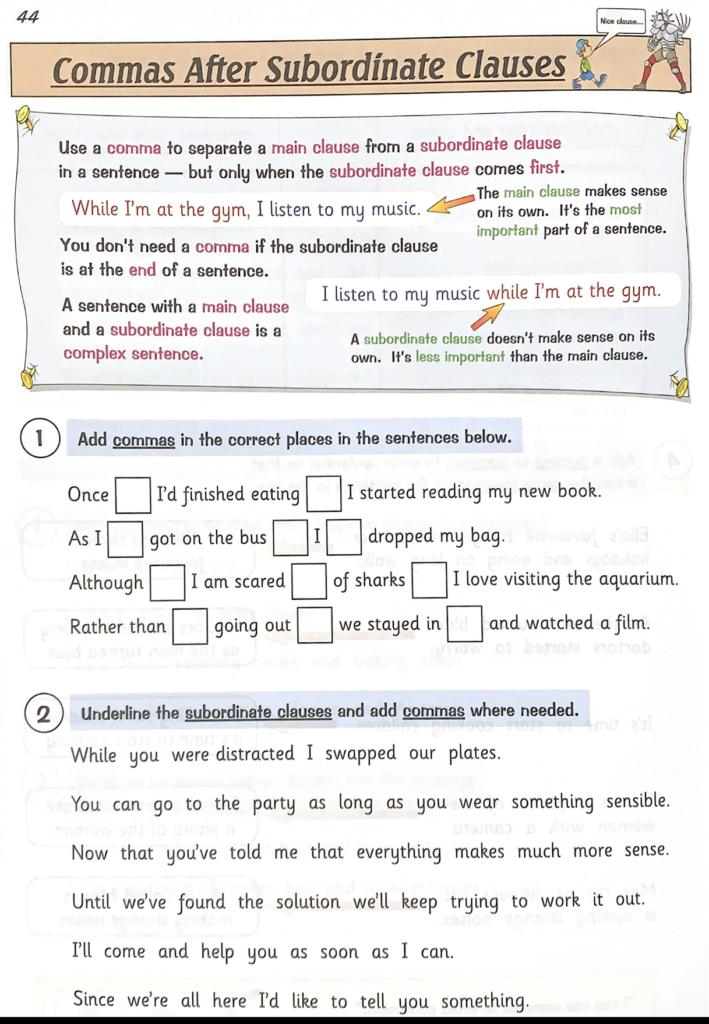 44
Nice clause...
Commas After Subordinate Clauses
Use a comma to separate a main clause from a subordinate clause
in a sentence — but only when the subordinate clause comes first.
While I'm at the gym, I listen to my music.
The main clause makes sense
on its own. It's the most
important part of a sentence.
You don't need a comma if the subordinate clause
is at the end of a sentence.
I listen to my music while I'm at the gym.
A sentence with a main clause
and a subordinate clause is a
complex sentence.
A subordinate clause doesn't make sense on its
own. It's less important than the main clause.
1 Add commas in the correct places in the sentences below.
Once I'd finished eating I started reading my new book.
As I got on the bus I dropped my bag.
Although I am scared of sharks I love visiting the aquarium.
Rather than going out we stayed in and watched a film.
2 Underline the subordinate clauses and add commas where needed.
While you were distracted I swapped our plates.
You can go to the party as long as you wear something sensible.
Now that you've told me that everything makes much more sense.
Until we've found the solution we'll keep trying to work it out.
I'll come and help you as soon as I can.
Since we're all here I'd like to tell you something.